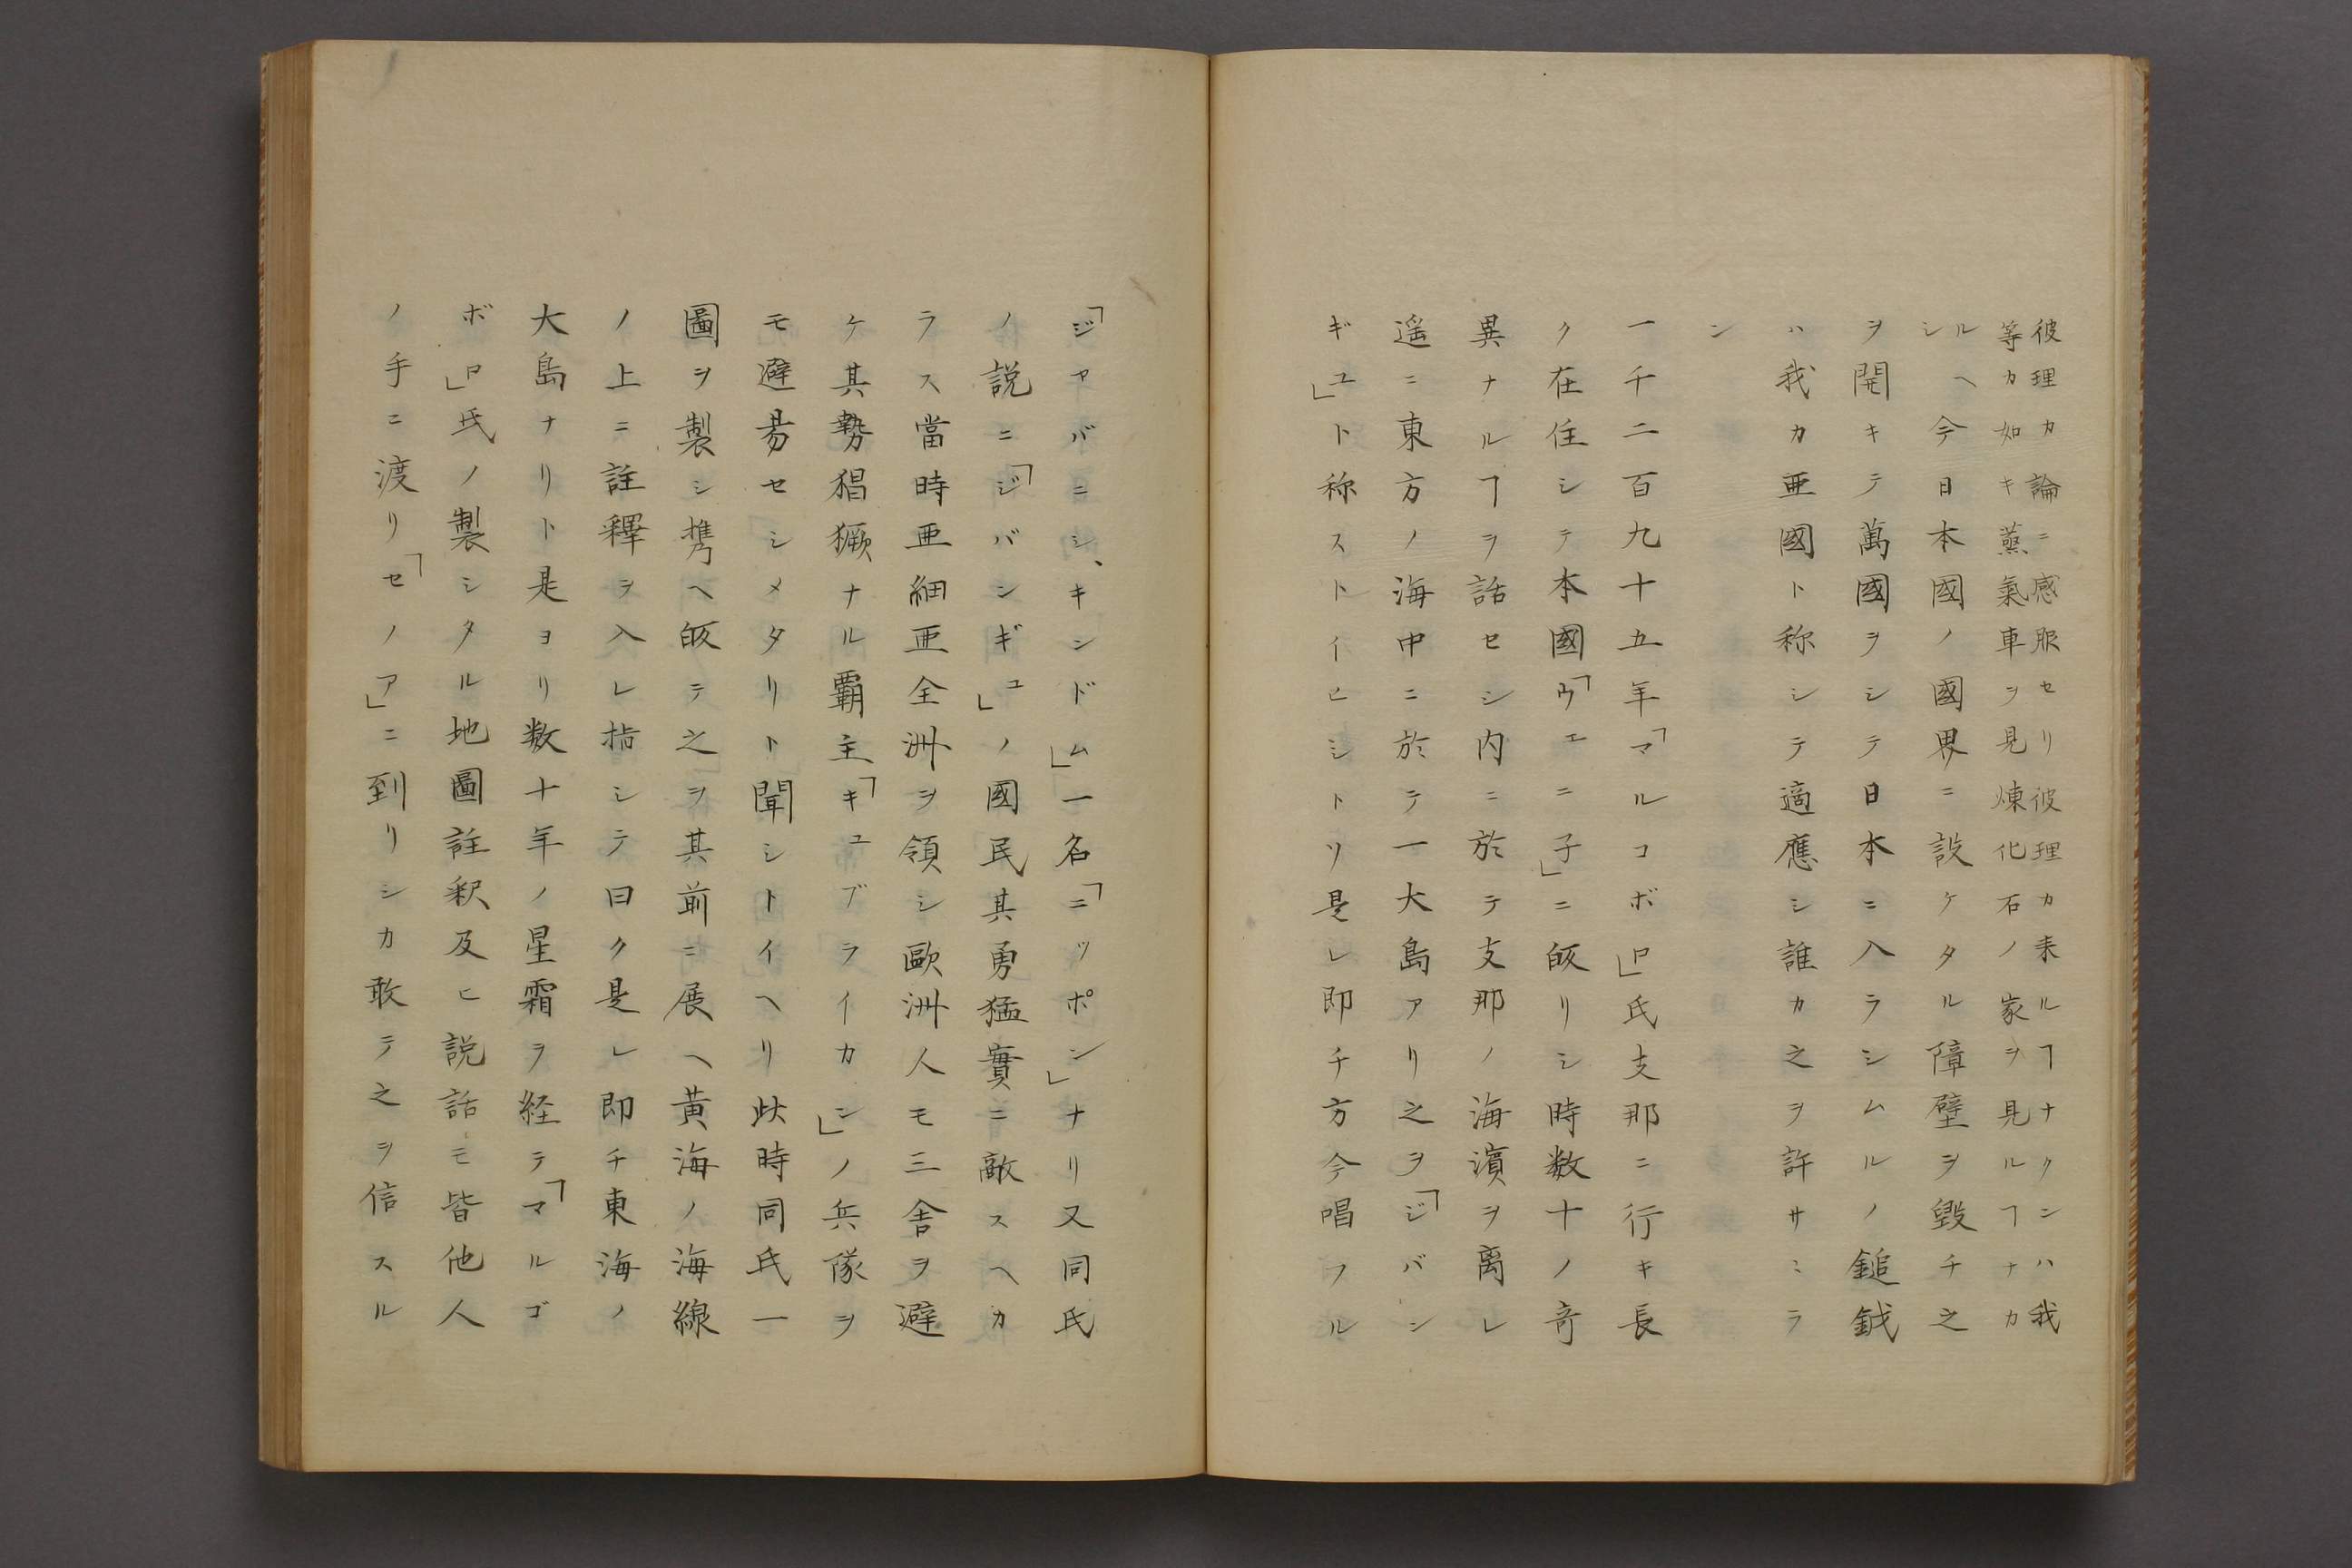 彼理カ論ニ感服セリ彼理カ来ルヿナクンハ我
等カ如キ蒸氣車ヲ見煉化石ノ家ヲ見ルヿナカ
ルヘシ
今日本國ノ國界ニ設ケタル障壁ヲ毀チ之
ヲ開キテ萬國ヲシテ日本ニ入ラシムルノ鎚鉞
ハ我カ亜國ト称シテ適應シ誰カ之ヲ許サヾラ
ン
一千二百九十五年「マルコボロ」氏支那ニ行キ長
ク在住シテ本國「ウエニ子」ニ皈リシ時数十ノ竒
異ナルヿヲ話セシ内ニ於テ支那ノ海濱ヲ离レ
遥ニ東方ノ海中ニ於テ一大島アリ之ヲ「ジバン
ギユ」ト称ストイヒシトリ是レ即チ方今唱フル
「ジヤバニシ、キンドム」一名「ニツポン」ナリ又同氏
ノ説ニ「ジバンギユ」ノ國民其勇猛實ニ敵スヘカ
ラス當時亜細亜全洲ヲ領シ歐洲人モ三舎ヲ避
ケ其勢猖獗ナル覇主「キユブライカン」ノ兵隊ヲ
モ避昜セシメタリト聞シトイヘリ此時同氏一
圖ヲ製シ携ヘ皈テ之ヲ其前ニ展ヘ黄海ノ海線
ノ上ニ註釋ヲ入レ指シテ曰ク是レ即チ東海ノ
大島ナリト是ヨリ数十年ノ星霜ヲ経テ「マルゴ
ボロ」氏ノ製シタル地圖註釈及ヒ説話モ皆他人
ノ手ニ渡リ「セノア」ニ到リシカ敢テ之ヲ信スル